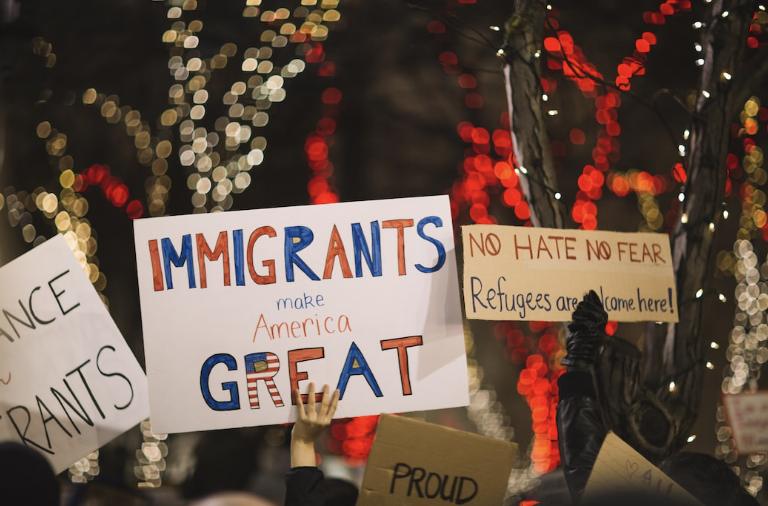 ANCE
RANTS
IMMIGRANTS
make
America
GREAT
NO HATE NO FEAR
Refugees are lcome here!
PROUD